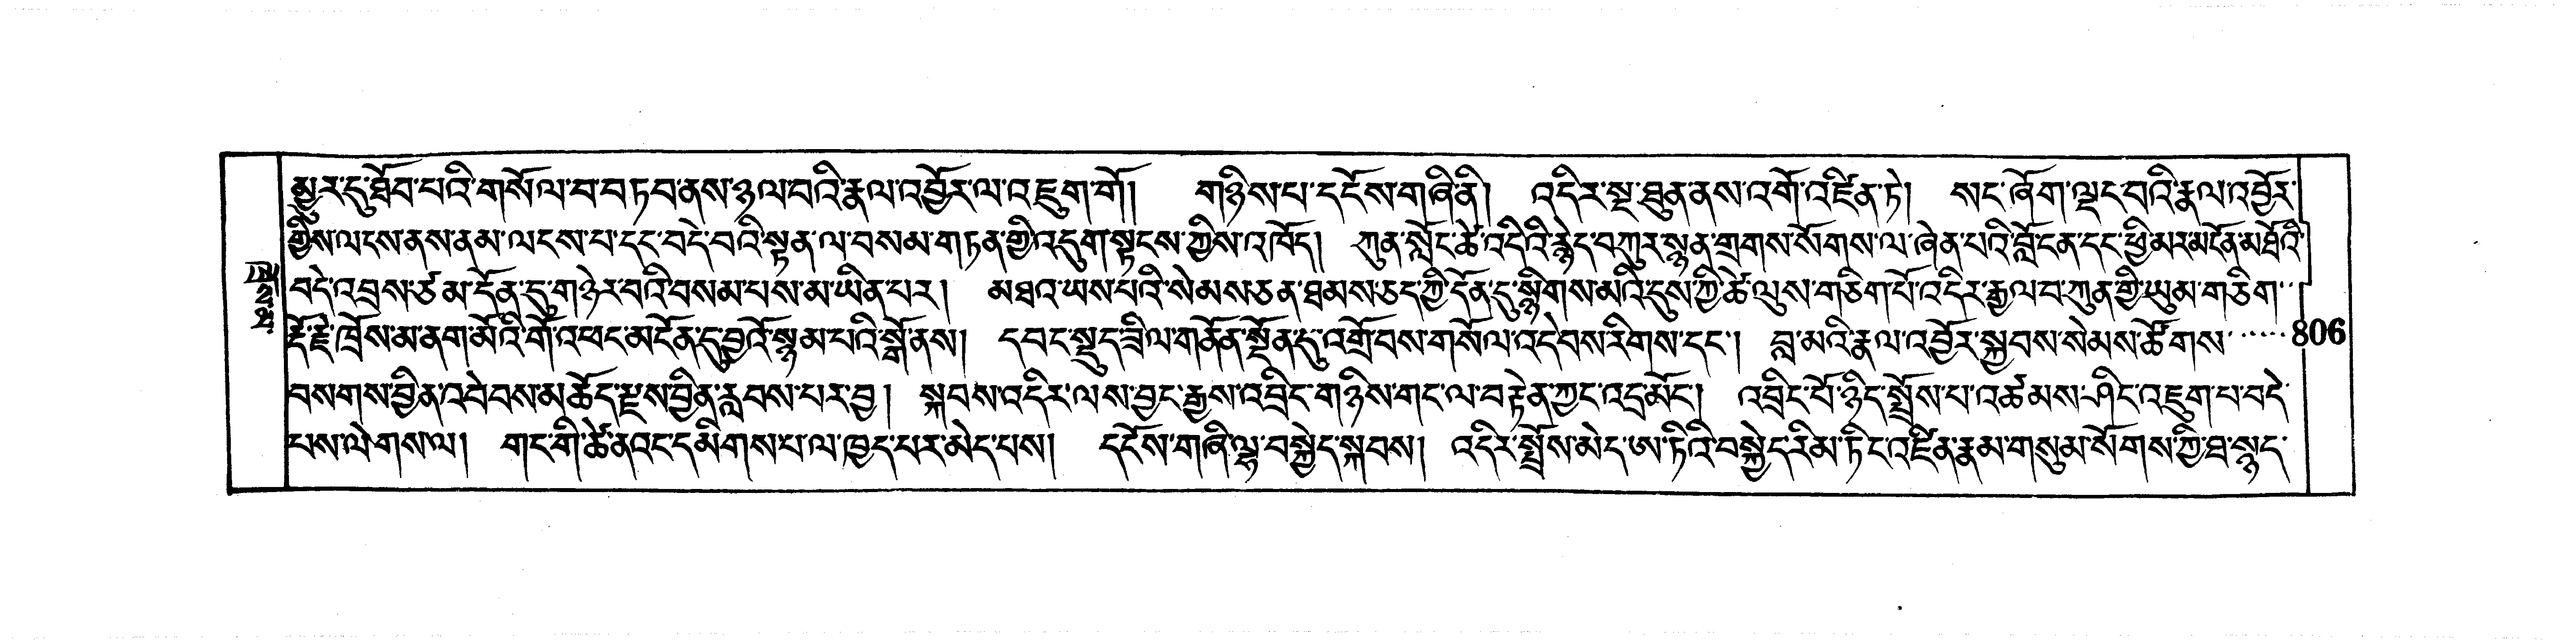 མྱུར་དུ་ཐོབ་པའི་གསོལ་བ་བཏབ་ནས་ཉལ་བའི་རྣལ་འབྱོར་ལ་འཇུག་གོ། གཉིས་པ་དངོས་གཞི་ནི། འདིར་སྔ་ཐུན་ནས་འགོ་འཛིན་ཏེ། སང་ཞོག་ལྡང་བའི་རྣལ་འབྱོར་
གྱིས་ལངས་ནས་ནམ་ལངས་པ་དང་བདེ་བའི་སྟན་ལ་བསམ་གཏན་གྱི་འདུག་སྟངས་ཀྱིས་འཁོད། ཀུན་སློང་ཚེ་འདིའི་རྙེད་བཀུར་སྙན་གྲགས་སོགས་ལ་ཞེན་པའི་བློ་ངན་དང་ཕྱི་མར་མངོན་མཐོའི་
བདེ་འབྲས་ཙམ་དོན་དུ་གཉེར་བའི་བསམ་པས་མ་ཡིན་པར། མཐའ་ཡས་པའི་སེམས་ཅན་ཐམས་ཅད་ཀྱི་དོན་དུ་སྙིགས་མའི་དུས་ཀྱི་ཚེ་ལུས་གཅིག་པོ་འདིར་རྒྱལ་བ་ཀུན་གྱི་ཡུམ་གཅིག་
རྡོ་རྗེ་ཁྲོས་མ་ནག་མོའི་གོ་འཕང་མངོན་དུ་བྱའོ་སྙམ་པའི་སྒོ་ནས། དབང་སྡུད་ཟིལ་གནོན་སྔོན་དུ་འགྲོ་བས་གསོལ་འདེབས་རིགས་དང་། བླ་མའི་རྣལ་འབྱོར་སྐྱབས་སེམས་ཚོགས་
806
བསགས་བྱིན་འབེབས་མཆོད་རྫས་བྱིན་རླབས་པར་བྱ། སྐབས་འདིར་ལས་བྱང་རྒྱས་འབྲིང་གཉིས་གང་ལ་བརྟེན་ཀྱང་འདྲ་མོད། འབྲིང་པོ་ཉིད་སྤྲོས་པ་འཚམས་ཤིང་འཇུག་པ་བདེ་
པས་ལེགས་ལ། གང་གི་ཚེ་ནའང་དམིགས་པ་ལ་ཁྱད་པར་མེད་པས། དངོས་གཞི་ལྷ་བསྐྱེད་སྐབས། འདིར་སྤྲོས་མེད་ཨ་ཏིའི་བསྐྱེད་རིམ་ཏིང་འཛིན་རྣམ་གསུམ་སོགས་ཀྱི་ཐ་སྙད་